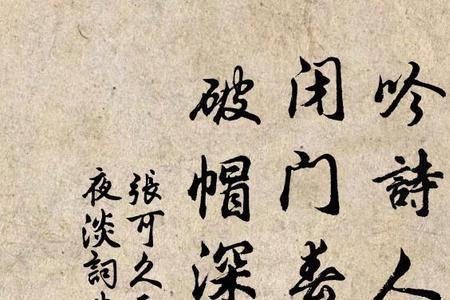 吟詩人
闭门春
破帽深
張可久
夜淡詞